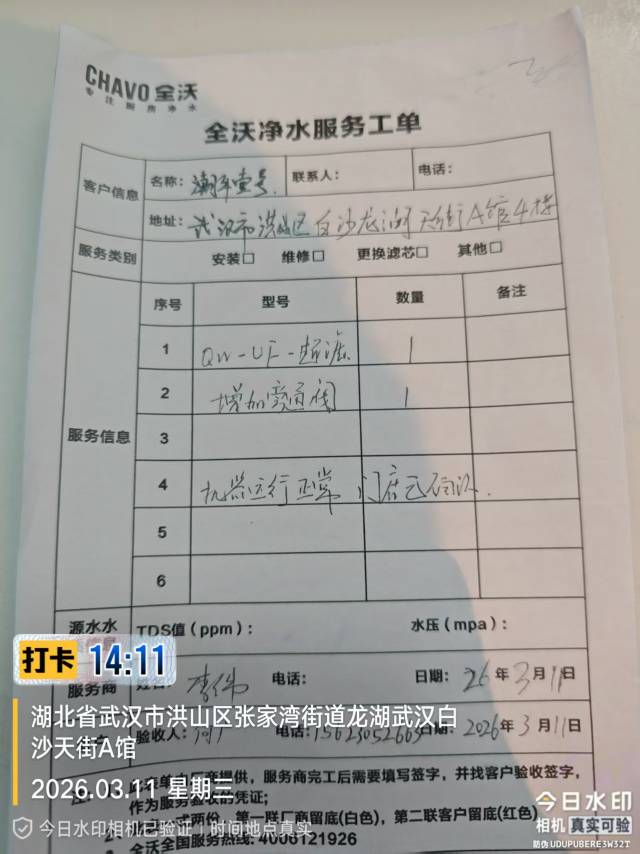 CHAVO 全沃
专注厨房净水
全沃净水服务工单
客户信息
名称: 潮年壹号
联系人:
电话:
地址: 武汉市洪山区白沙龙湖天街A馆4楼
服务类别
安装□ 维修□ 更换滤芯□ 其他□
服务信息
序号 型号 数量 备注
1 QW-UF-超滤 1
2 增加旁通阀 1
3
4 机器运行正常 门店已确认.
5
6
源水水
TDS值(ppm): 水压(mpa):
服务商 李伟 电话: 日期: 26年3月11日
验收人: 电话: 日期: 2026年3月11日
单由厂商提供，服务商完工后需要填写签字，并找客户验收签字，
作为服务验收的凭证;
式两份，第一联厂商留底(白色)，第二联客户留底(红色)
全沃全国服务热线: 4006121926
打卡 14:11
湖北省武汉市洪山区张家湾街道龙湖武汉白
沙天街A馆
2026.03.11 星期三
今日水印相机已验证 | 时间地点真实
今日水印
相机 真实可验
防伪 UDUPUBERE3W32T